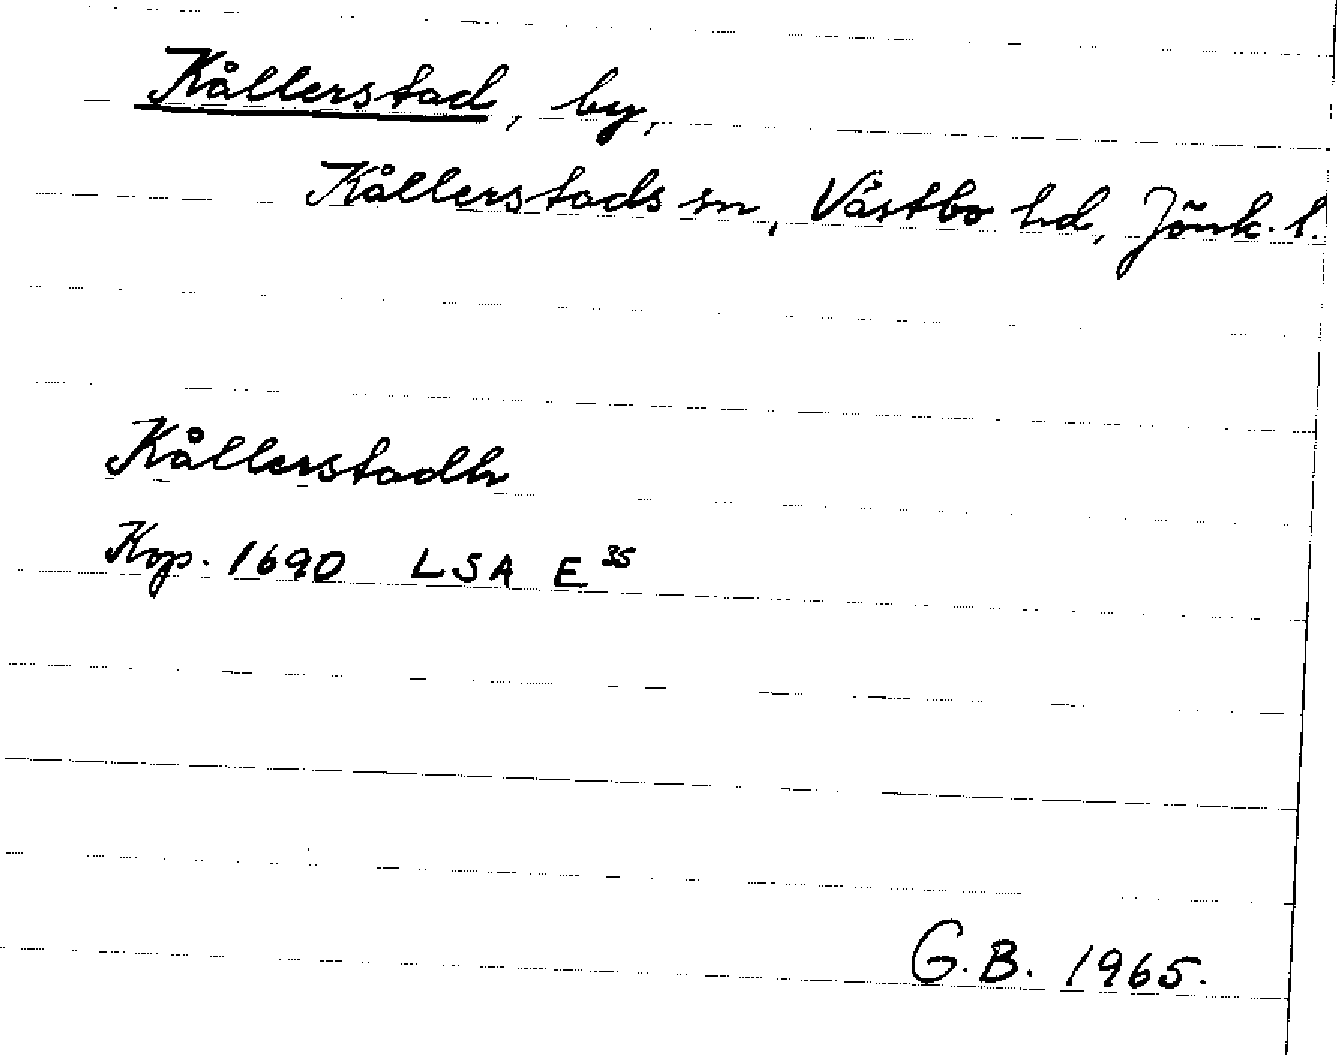 Kållerstad, by,
Kållerstads sn, Västbo hd, Jönk. l.
Kållerstadh
Kop. 1690 LSA E 35
G.B. 1965.